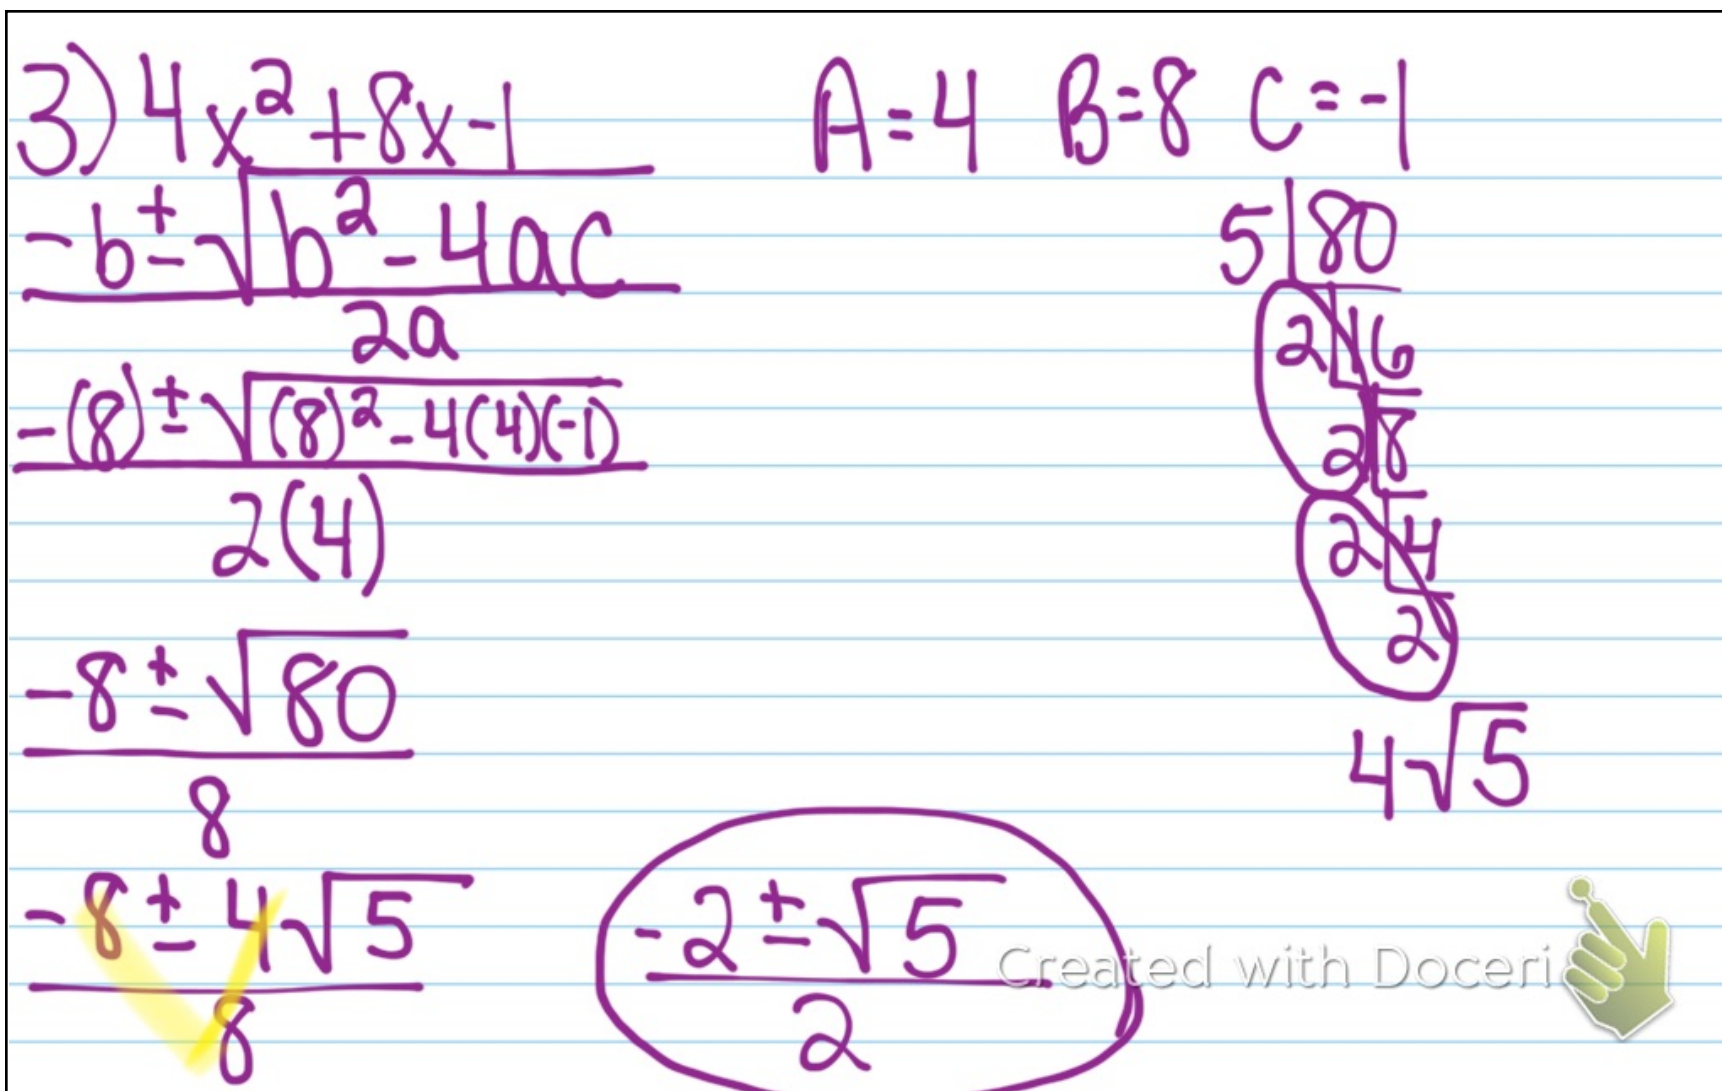 3) 4x² + 8x - 1
A = 4 B = 8 C = -1
-b ± √(b² - 4ac)
2a
-(8) ± √((8)² - 4(4)(-1))
2(4)
-8 ± √80
8
-8 ± 4√5
8
-2 ± √5
2
5|80
2|16
2|8
2|4
2
4√5
Created with Doceri